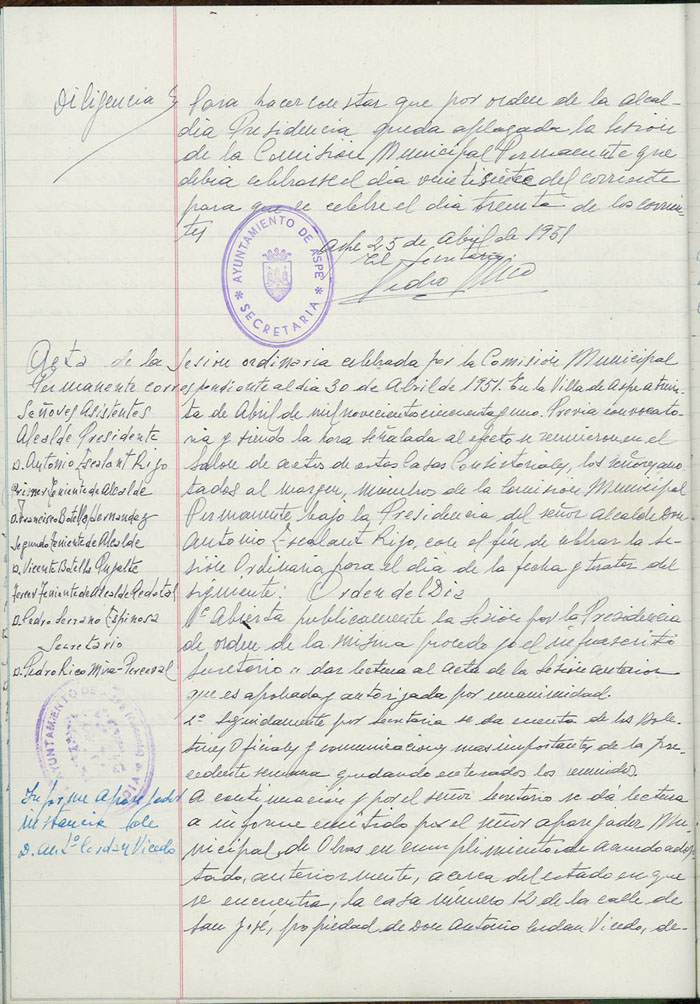 Diligencia § Para hacer constar que por orden de la alcal-
dia Presidencia queda aplazada la Sesión
de la Comisión Municipal Permanente que
debia celebrarse el dia veintisiete del corriente
para que se celebre el dia treinta de los corrien-
tes
Aspe 25 de Abril de 1951
El Secretario,
Pedro Rico
AYUNTAMIENTO DE ASPE
SECRETARIA
Acta de la Sesion ordinaria celebrada por la Comisión Municipal
Permanente correspondiente al dia 30 de Abril de 1951. En la Villa de Aspe a trein-
ta de Abril de mil novecientos cincuenta y uno. Previa convocato-
ria y siendo la hora señalada al efecto se reunieron en el
Salon de actos de estas Casas Consistoriales, los señores ano-
tados al margen, miembros de la Comisión Municipal
Permanente, bajo la Presidencia del señor alcalde Don
Antonio Escalant Rijo, con el fin de celebrar la se-
sión Ordinaria para el dia de la fecha y tratar del
siguiente: Orden del Dia
1º Abierta publicamente la Sesión por la Presidencia
de orden de la misma procedo yo el infrascrito
Secretario a dar lectura al acta de la Sesión anterior
que es aprobada y autorizada por unanimidad.
Seguidamente por Secretaria se da cuenta de los Bole-
tines Oficiales y comunicaciones mas importantes de la pre-
cedente semana quedando enterados los reunidos.
A continuación y por el señor Secretario se dá lectura
a informe emitido por el señor aparejador Mu-
nicipal de Obras en cumplimiento de acuerdo adop-
tado, anteriormente, acerca del estado en que
se encuentra, la casa número 12 de la calle de
San José, propiedad de Don Antonio Cerdan Vicedo, de-
Señores Asistentes
Alcalde Presidente
D. Antonio Escalant Rijo
Primer Teniente de Alcalde
D. Francisco Botella Hernandez
Segundo Teniente de Alcalde
D. Vicente Botella
Tercer Teniente de Alcalde
D. Pedro Serrano Espinosa
Secretario
D. Pedro Rico Mira-Perceval
AYUNTAMIENTO DE
Informe aparejador
instancia de
D. Antº Cerdan Vicedo